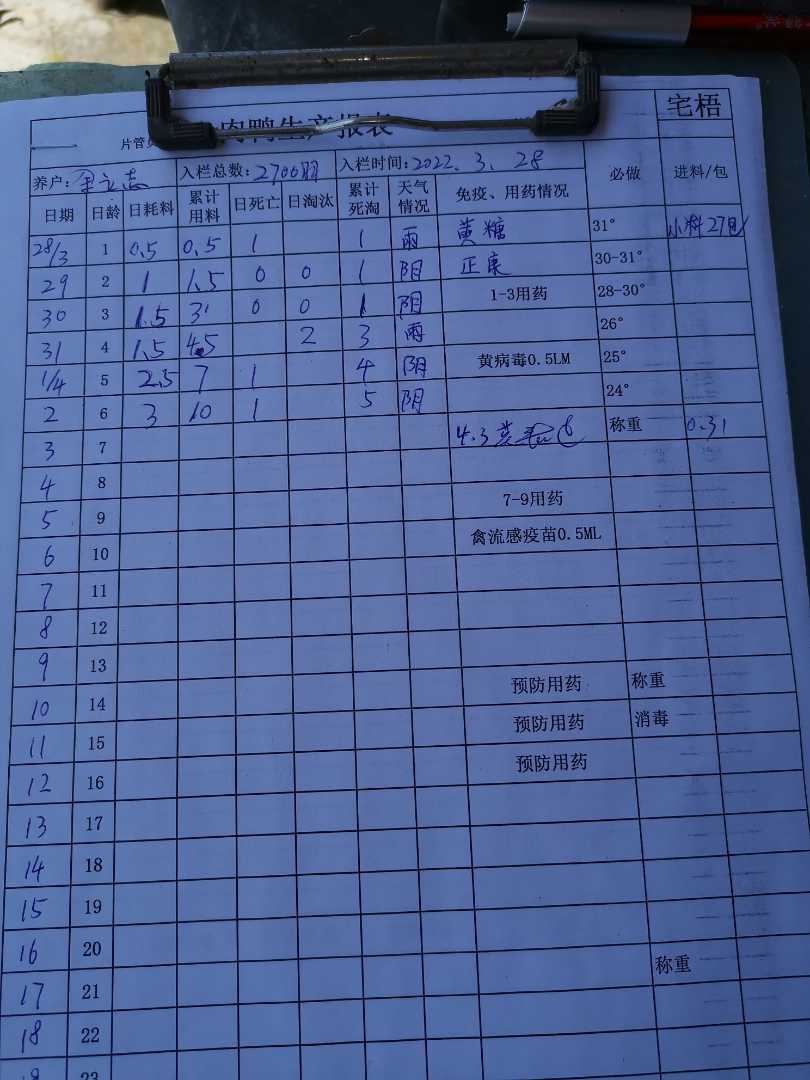 宅梧
片管员 肉鸭生产报表
养户: 立志 入栏总数: 2700羽 入栏时间: 2022.3.28
日期 日龄 日耗料 累计用料 日死亡 日淘汰 累计死淘 天气情况 免疫、用药情况 必做 进料/包
28/3 1 0.5 0.5 1 1 雨 黄糖 31° 小料27包
29 2 1 1.5 0 0 1 阴 正康 30-31°
30 3 1.5 3 0 0 1 阴 1-3用药 28-30°
31 4 1.5 4.5 2 3 雨 26°
1/4 5 2.5 7 1 4 阴 黄病毒0.5LM 25°
2 6 3 10 1 5 阴 24°
3 7 4.3 称重 0.31
4 8
5 9 7-9用药
6 10 禽流感疫苗0.5ML
7 11
8 12
9 13
10 14 预防用药 称重
11 15 预防用药 消毒
12 16 预防用药
13 17
14 18
15 19
16 20
17 21 称重
18 22
19 23